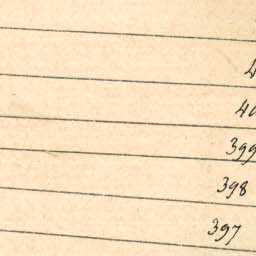 399
398
397